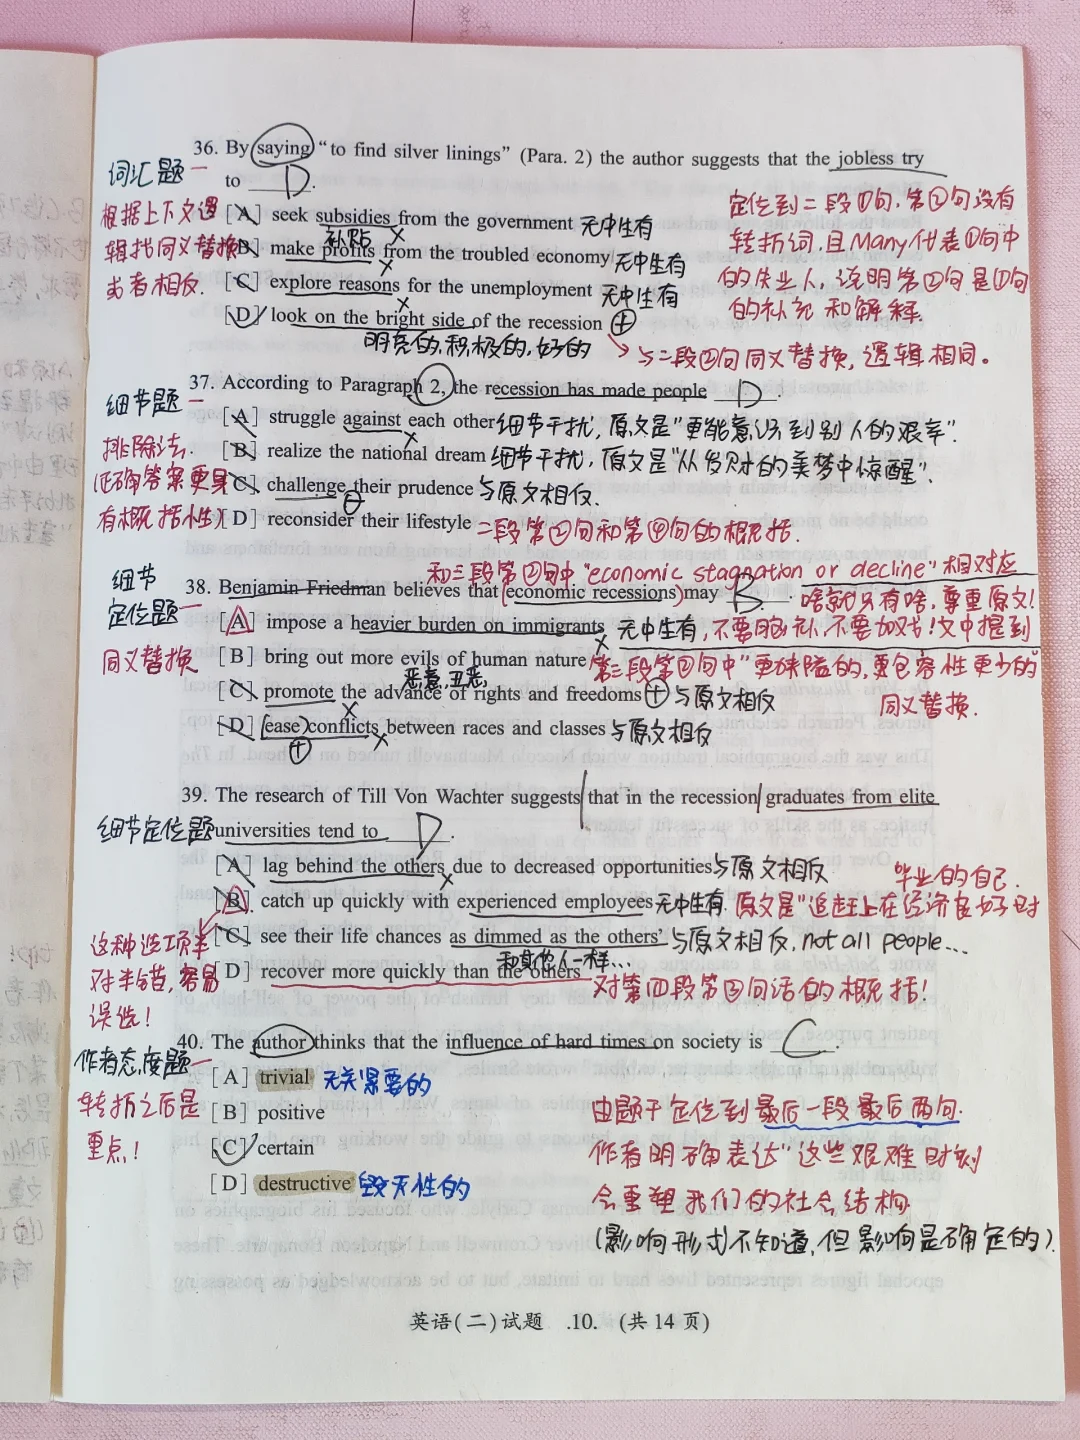 36. By saying “to find silver linings” (Para. 2) the author suggests that the jobless try
to D.
词汇题
根据上下文逻
辑找同义替换
或者相反.
[A] seek subsidies from the government 无中生有
补贴
[B] make profits from the troubled economy 无中生有
[C] explore reasons for the unemployment 无中生有
[D] look on the bright side of the recession
明亮的,积极的,好的
定位到二段①句,第②句没有
转折词,且Many代表①句中
的失业人,说明第②句是①句
的补充和解释.
与二段②句同义替换,逻辑相同。
37. According to Paragraph 2, the recession has made people D.
细节题
排除法.
正确答案更具
有概括性!
[A] struggle against each other 细节干扰,原文是“更能意识到别人的艰辛”.
[B] realize the national dream 细节干扰,原文是“从发财的美梦中惊醒”.
[C] challenge their prudence 与原文相反.
[D] reconsider their lifestyle 二段第②句和第④句的概括.
和三段第②句中“economic stagnation or decline”相对应
38. Benjamin Friedman believes that economic recessions may B. 啥就只有啥,尊重原文!
细节
定位题
同义替换
[A] impose a heavier burden on immigrants 无中生有,不要脑补,不要加戏!文中提到
[B] bring out more evils of human nature 第三段第②句中“更狭隘的,更包容性更少的”
恶意,丑恶,
同义替换.
[C] promote the advance of rights and freedoms 与原文相反
[D] ease conflicts between races and classes 与原文相反
39. The research of Till Von Wachter suggests that in the recession graduates from elite
细节定位题
universities tend to D.
[A] lag behind the others due to decreased opportunities 与原文相反
毕业的自己.
[B] catch up quickly with experienced employees 无中生有. 原文是“追赶上在经济良好时
[C] see their life chances as dimmed as the others’ 与原文相反, not all people...
和其他人一样...
[D] recover more quickly than the others 对第四段第③句话的概括!
这种选项半
对半错,容易
误选!
40. The author thinks that the influence of hard times on society is C.
作者态度题
转折之后是
重点!
[A] trivial 无关紧要的
[B] positive
[C] certain
[D] destructive 毁灭性的
由题干定位到最后一段最后两句.
作者明确表达“这些艰难时刻
会重塑我们的社会结构
(影响形式不知道,但影响是确定的).
英语(二)试题 .10. (共14页)